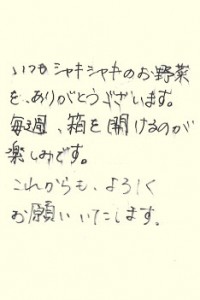 いつもシャキシャキのお野菜
を、ありがとうございます。
毎週、箱を開けるのが
楽しみです。
これからも、よろしく
お願いいたします。